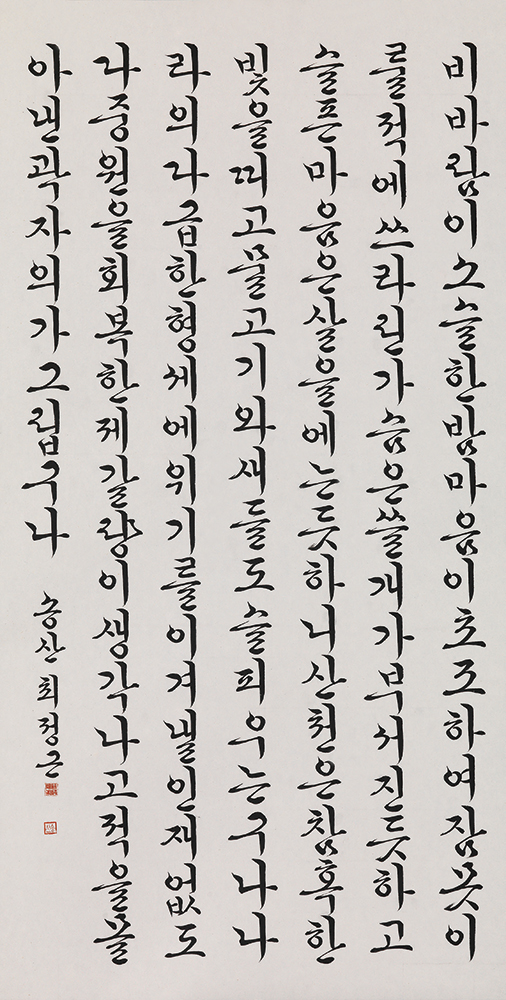 비바람이소슬한밤마음이초조하여잠못이
룰적에쓰라린가슴은쓸개가부서진듯하고
슬픈마음은살을에는듯하니산천은참혹한
빛을띠고물고기와새들도슬피우는구나나
라의다급한형세에위기를이겨낼인재없도
다중원을회복한제갈량이생각나고적을몰
아낸곽자의가그립구나
송산최정근